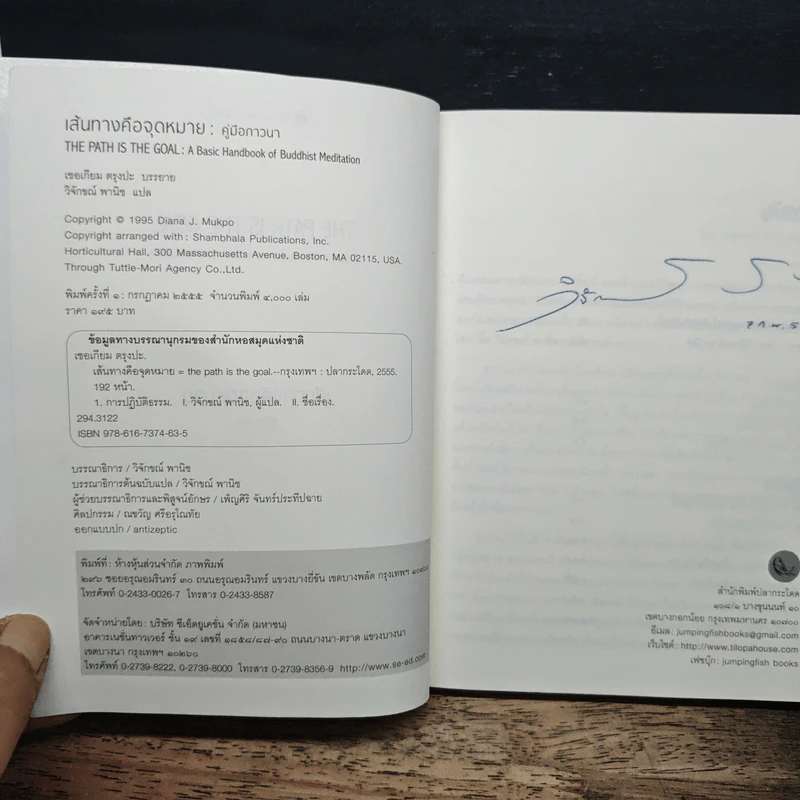 เส้นทางคือจุดหมาย : คู่มือภาวนา
THE PATH IS THE GOAL : A Basic Handbook of Buddhist Meditation
เชอเกียม ตรุงปะ บรรยาย
วิจักขณ์ พานิช แปล
Copyright © 1995 Diana J. Mukpo
Copyright arranged with : Shambhala Publications, Inc.
Horticultural Hall, 300 Massachusetts Avenue, Boston, MA 02115, USA.
Through Tuttle-Mori Agency Co.,Ltd.
พิมพ์ครั้งที่ ๑ : กรกฎาคม ๒๕๕๕ จำนวนพิมพ์ ๔,๐๐๐ เล่ม
ราคา ๑๙๕ บาท
ข้อมูลทางบรรณานุกรมของสำนักหอสมุดแห่งชาติ
เชอเกียม ตรุงปะ.
เส้นทางคือจุดหมาย = the path is the goal.--กรุงเทพฯ : ปลากระโดด, 2555.
192 หน้า.
1. การปฏิบัติธรรม. I. วิจักขณ์ พานิช, ผู้แปล. II. ชื่อเรื่อง.
294.3122
ISBN 978-616-7374-63-5
บรรณาธิการ / วิจักขณ์ พานิช
บรรณาธิการต้นฉบับแปล / วิจักขณ์ พานิช
ผู้ช่วยบรรณาธิการและพิสูจน์อักษร / เพ็ญศิริ จันทร์ประทีปฉาย
ศิลปกรรม / ณขวัญ ศรีอรุโณทัย
ออกแบบปก / antizeptic
พิมพ์ที่ : ห้างหุ้นส่วนจำกัด ภาพพิมพ์
๒๙๖ ซอยอรุณอมรินทร์ ๓๐ ถนนอรุณอมรินทร์ แขวงบางยี่ขัน เขตบางพลัด กรุงเทพฯ
โทรศัพท์ 0-2433-0026-7 โทรสาร 0-2433-8587
จัดจำหน่ายโดย : บริษัท ซีเอ็ดยูเคชั่น จำกัด (มหาชน)
อาคารเนชั่นทาวเวอร์ ชั้น ๑๙ เลขที่ ๑๘๕๘/๘๗-๙๐ ถนนบางนา-ตราด แขวงบางนา
เขตบางนา กรุงเทพฯ ๑๐๒๖๐
โทรศัพท์ 0-2739-8222, 0-2739-8000 โทรสาร 0-2739-8356-9 http://www.se-ed.com
สำนักพิมพ์ปลากระโดด
๑๐๘/๑ บางขุนนนท์ ๑๐
เขตบางกอกน้อย กรุงเทพมหานคร ๑๐๗๐๐
อีเมล : jumpingfishbooks@gmail.com
เว็บไซต์ : http://www.tilopahouse.com
เฟซบุ๊ก : jumpingfish books